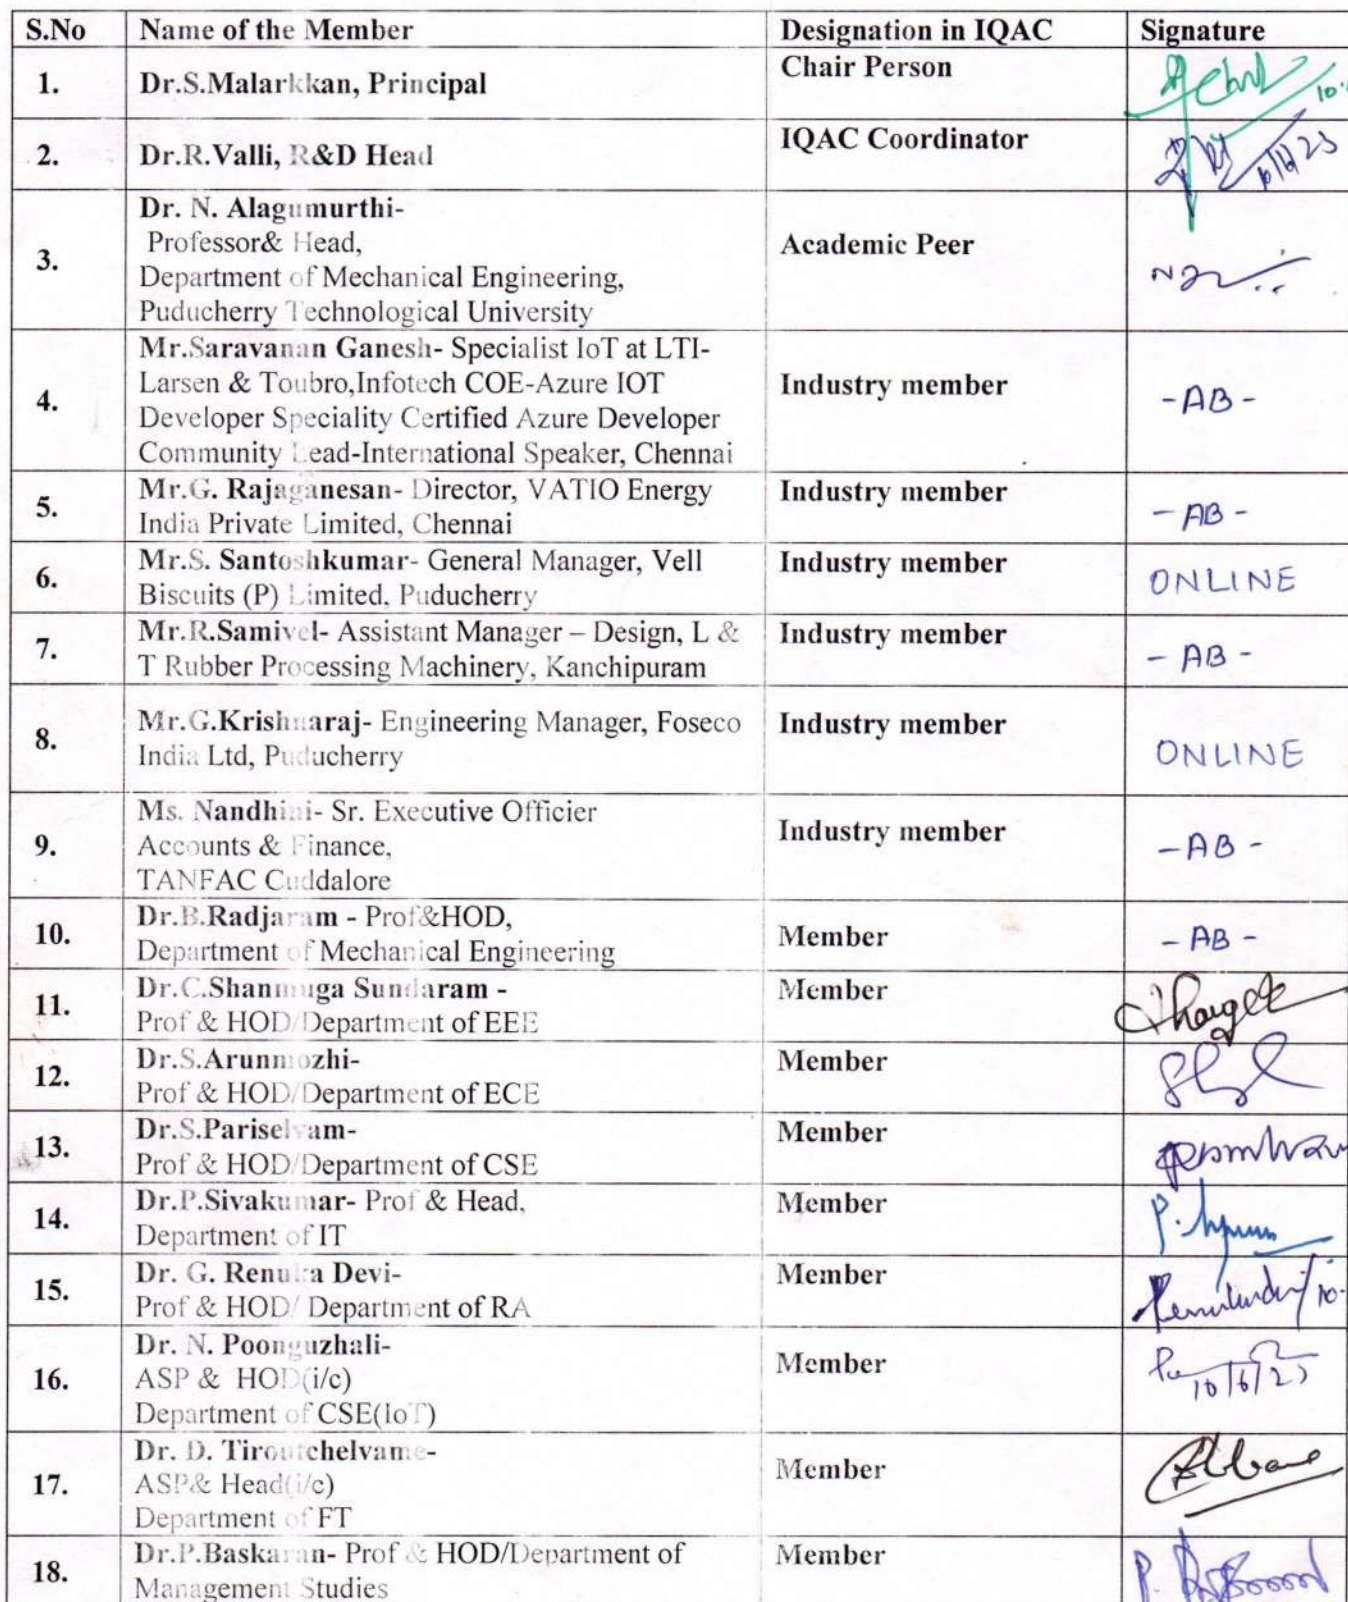 S.No Name of the Member Designation in IQAC Signature
1. Dr.S.Malarkkan, Principal Chair Person
2. Dr.R.Valli, R&D Head IQAC Coordinator
10/6/23
3. Dr. N. Alagumurthi-
Professor& Head,
Department of Mechanical Engineering,
Puducherry Technological University
Academic Peer
4. Mr.Saravanan Ganesh- Specialist IoT at LTI-
Larsen & Toubro,Infotech COE-Azure IOT
Developer Speciality Certified Azure Developer
Community Lead-International Speaker, Chennai
Industry member
-AB-
5. Mr.G. Rajaganesan- Director, VATIO Energy
India Private Limited, Chennai
Industry member
-AB-
6. Mr.S. Santoshkumar- General Manager, Vell
Biscuits (P) Limited, Puducherry
Industry member
ONLINE
7. Mr.R.Samivel- Assistant Manager – Design, L &
T Rubber Processing Machinery, Kanchipuram
Industry member
-AB-
8. Mr.G.Krishnaraj- Engineering Manager, Foseco
India Ltd, Puducherry
Industry member
ONLINE
9. Ms. Nandhini- Sr. Executive Officier
Accounts & Finance,
TANFAC Cuddalore
Industry member
-AB-
10. Dr.B.Radjaram - Prof&HOD,
Department of Mechanical Engineering
Member
-AB-
11. Dr.C.Shanmuga Sundaram -
Prof & HOD/Department of EEE
Member
12. Dr.S.Arunmozhi-
Prof & HOD/Department of ECE
Member
13. Dr.S.Pariselvam-
Prof & HOD/Department of CSE
Member
14. Dr.P.Sivakumar- Prof & Head,
Department of IT
Member
15. Dr. G. Renuka Devi-
Prof & HOD/ Department of RA
Member
16. Dr. N. Poonguzhali-
ASP & HOD(i/c)
Department of CSE(IoT)
Member
10/6/23
17. Dr. D. Tiroutchelvame-
ASP& Head(i/c)
Department of FT
Member
18. Dr.P.Baskaran- Prof & HOD/Department of
Management Studies
Member